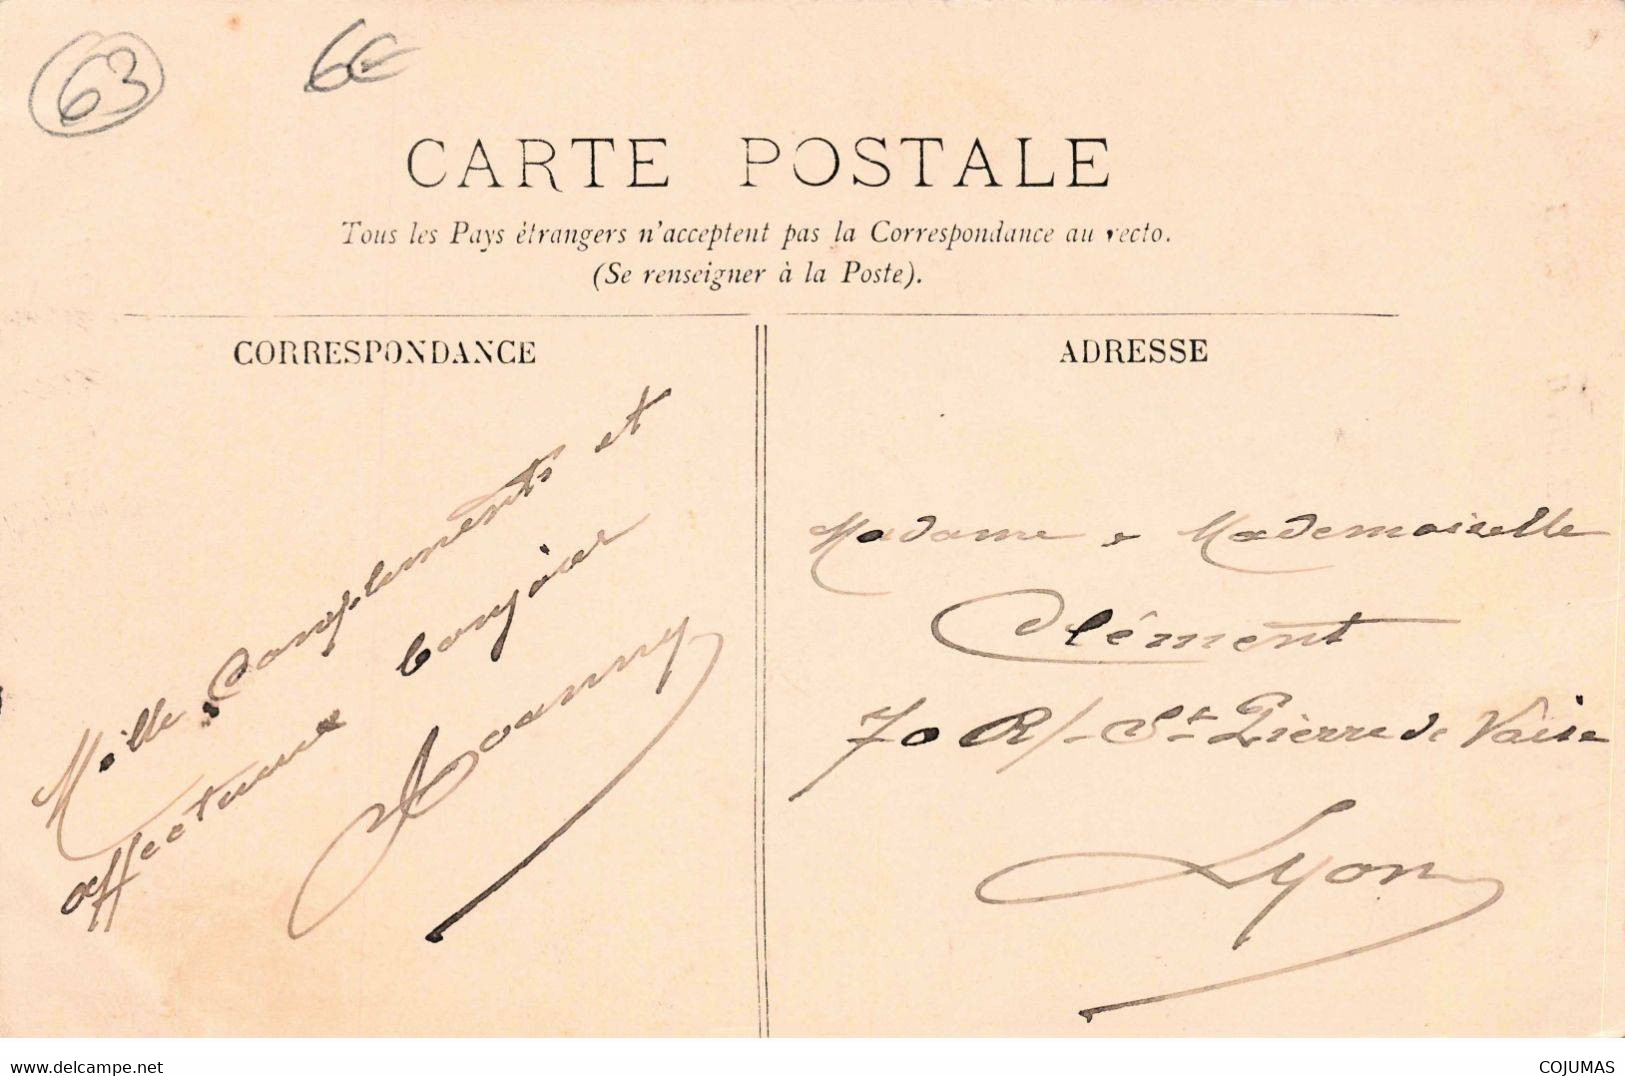 63
6€
CARTE POSTALE
Tous les Pays étrangers n'acceptent pas la Correspondance au recto.
(Se renseigner à la Poste).
CORRESPONDANCE
ADRESSE
Mille Compliments et
affectueux bonjour
Joanny
Madame & Mademoiselle
Clément
70 R/- St Pierre de Vaise
Lyon
www.delcampe.net
COJUMAS